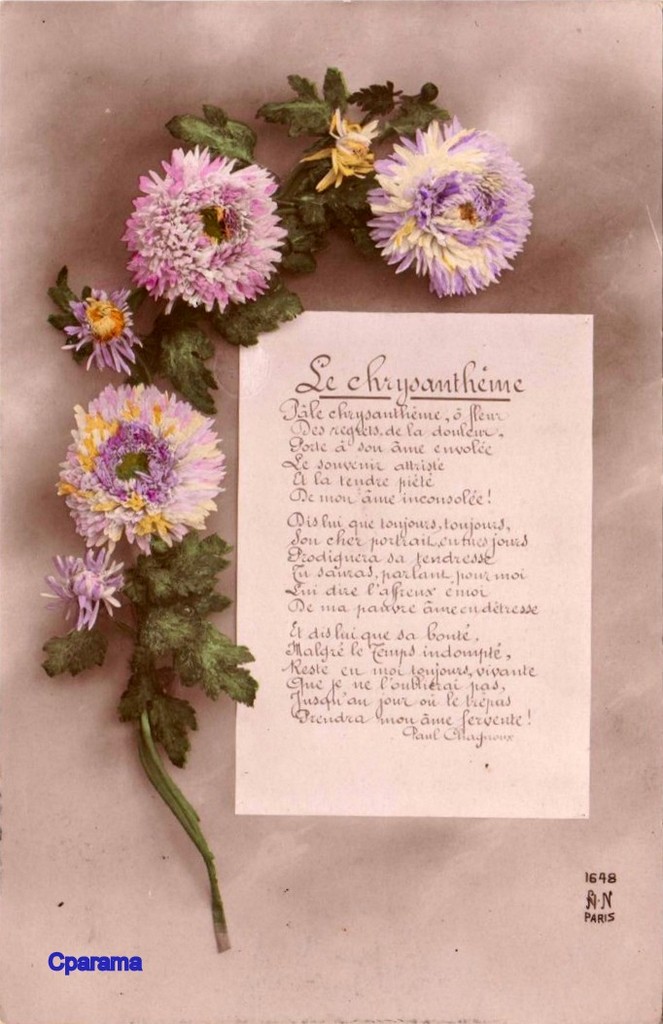 Le chrysanthème
Pâle chrysanthème, ô fleur
Des regrets, de la douleur,
Porte à son âme envolée
Le souvenir attristé
Et la tendre piété
De mon âme inconsolée!
Dis lui que toujours, toujours,
Son cher portrait, en mes jours
Prodiguera sa tendresse
Tu sauras, parlant pour moi
Lui dire l'affreux émoi
De ma pauvre âme en détresse
Et dis lui que sa bonté,
Malgré le Temps indompté,
Reste en moi toujours, vivante
Que je ne l'oublierai pas,
Jusqu'au jour où le trépas
Prendra mon âme fervente!
Paul Chagnoux
1648
A.N
PARIS
Cparama